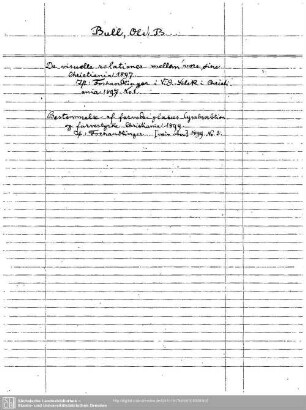 Bull, Ole B.
De visuelle relationer mellem vore øine.
Christiania 1897.
Af: Forhandlinger i V.S. Selsk. i Christi-
ania 1897. No.
Bestemmelse af farvede glasses lysabsorbtion
og farvestyrke. Christiania 1899.
Af: Forhandlinger... 1899. No.
Sächsische Landesbibliothek –
Staats- und Universitätsbibliothek Dresden